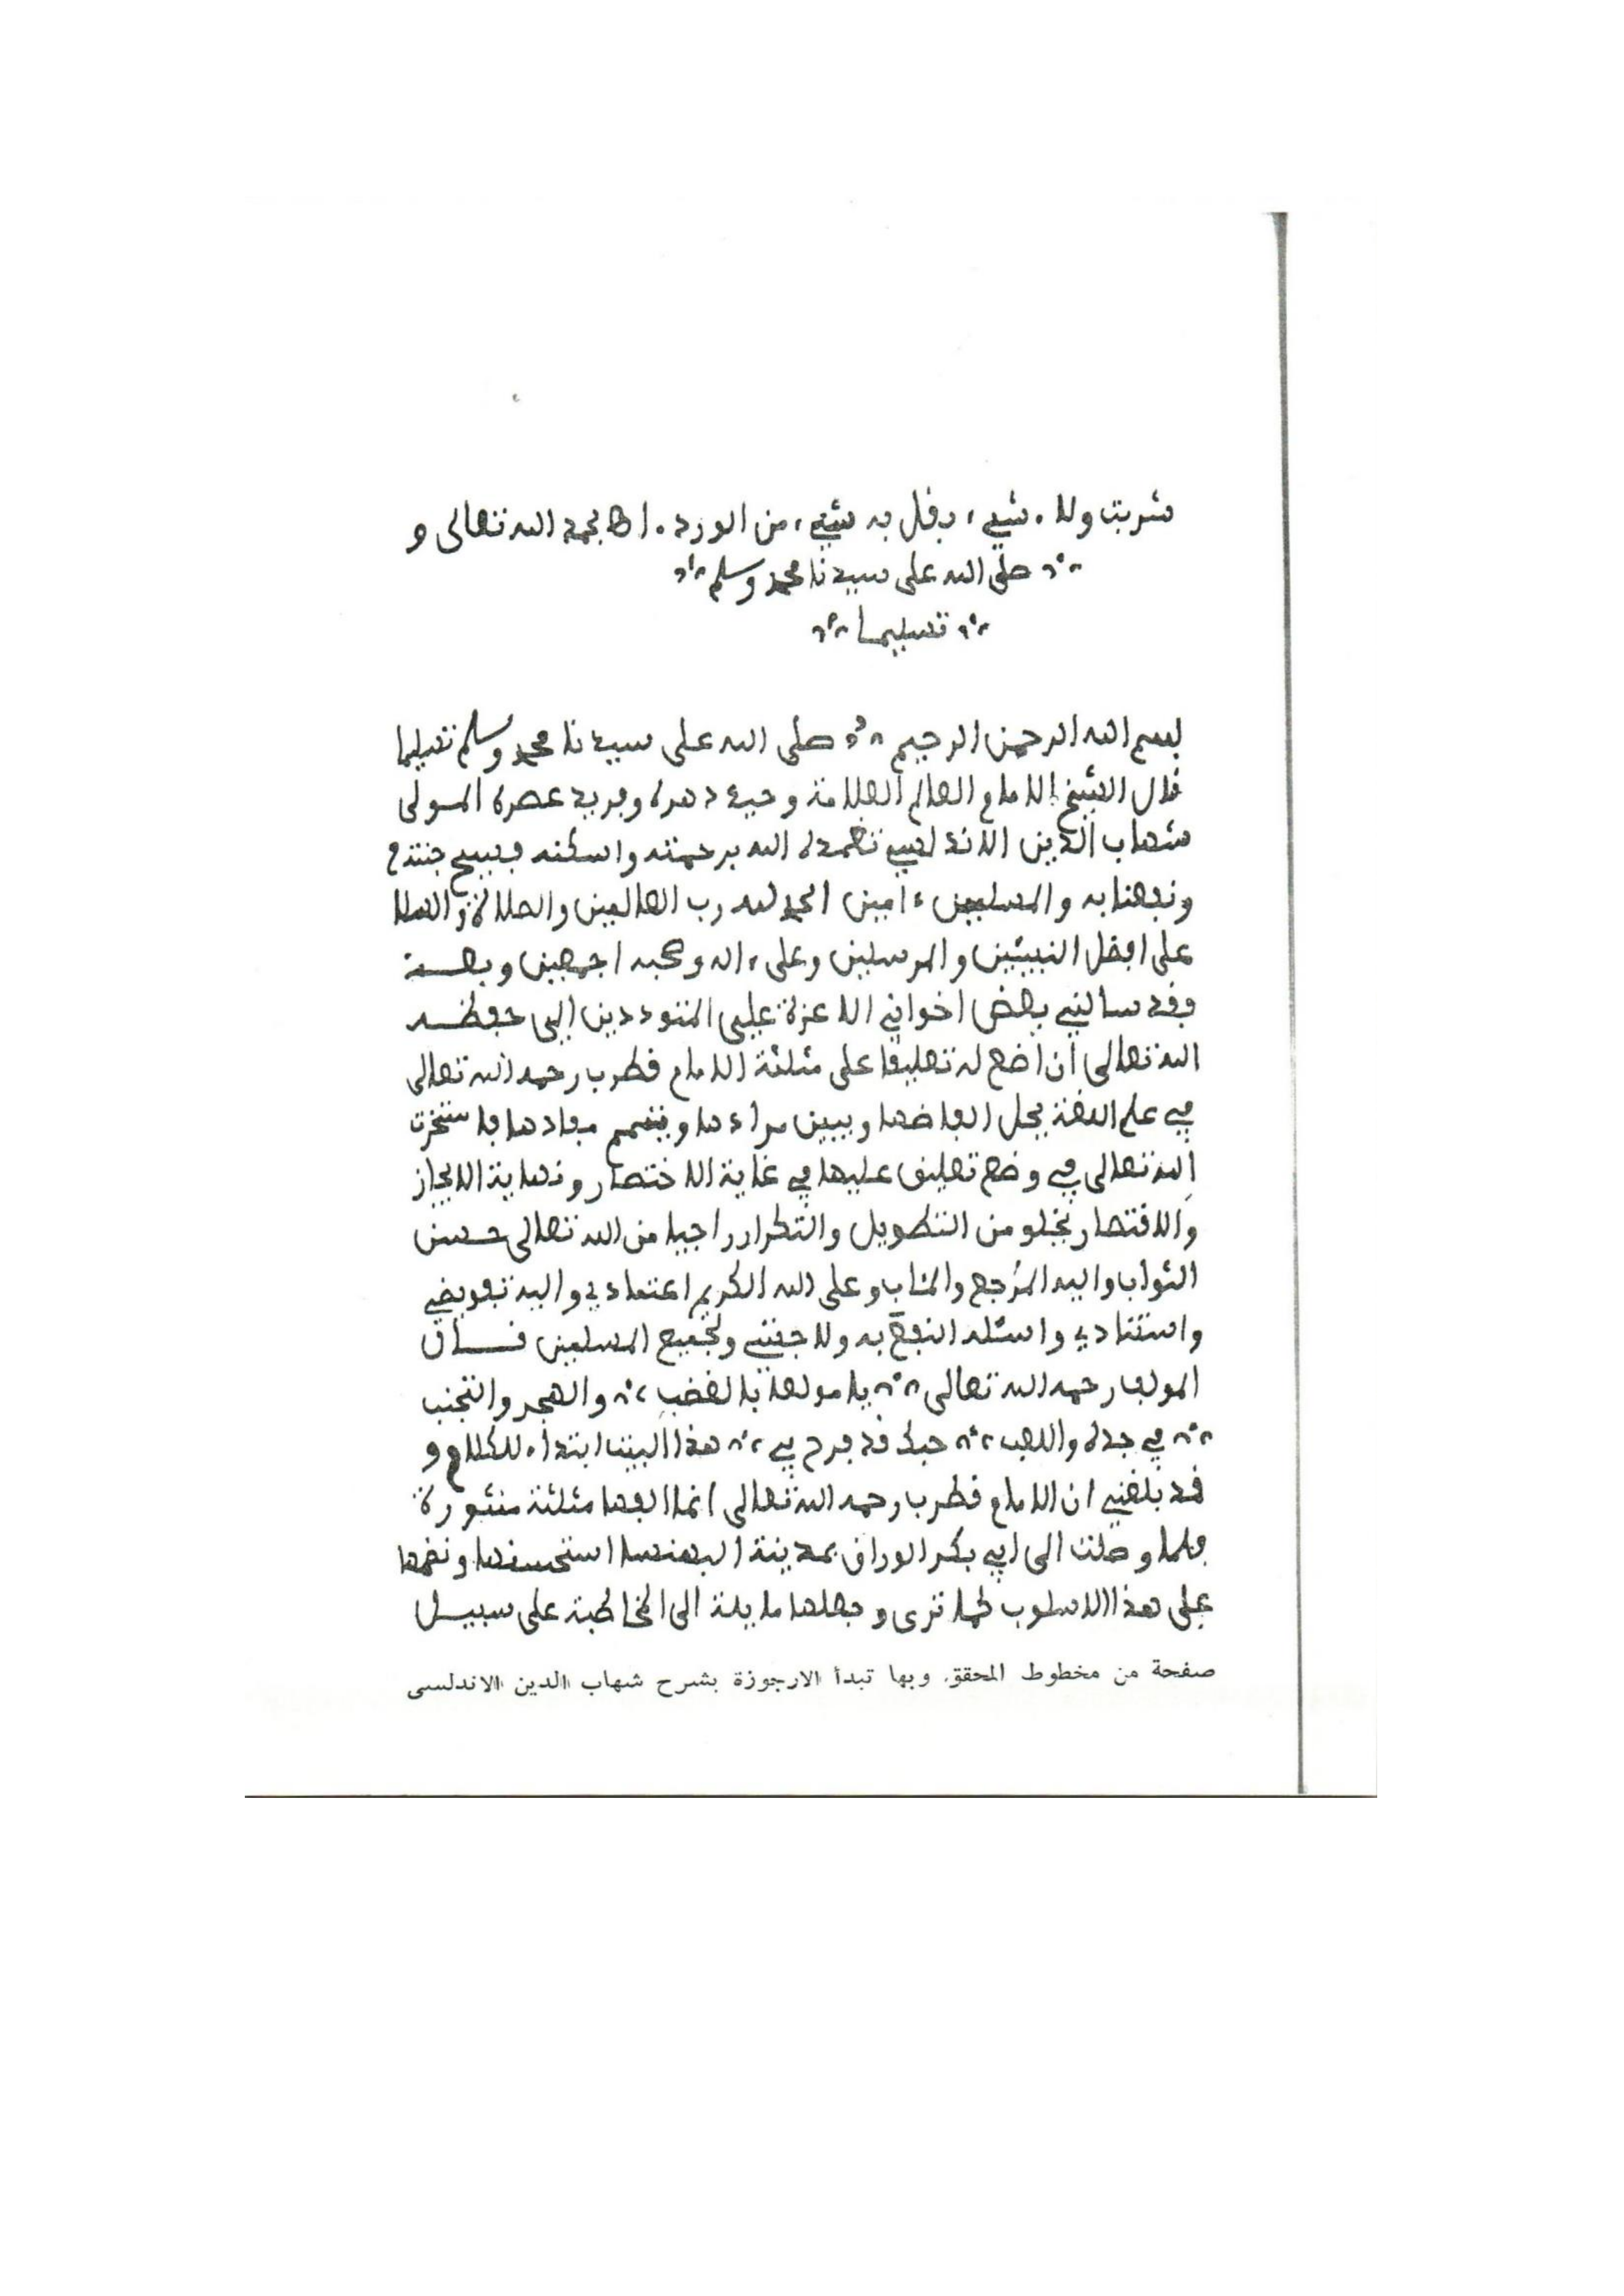 شربت ولا شيء يفل به شيء من الورد. اﻫ بحمد الله تعالى و
صلى الله على سيدنا محمد وسلم
تسليما
بسم الله الرحمن الرحيم صلى الله على سيدنا محمد وسلم تسليما
قال الشيخ الامام العالم العلامة وحيد دهره وفريد عصره المولى
شهاب الدين الاندلسي تغمده الله برحمته واسكنه فسيح جنته
ونفعنا به والمسلمين ءامين الحمد لله رب العالمين والصلاة والسلا
على افضل النبيئين والمرسلين وعلى ءاله وصحبه اجمعين وبعد
فقد سالني بعض اخواني الاعزة علي المتوددين إلي حفظه
الله تعالى ان اضع له تعليقا على مثلثة الامام قطرب رحمه الله تعالى
في علم اللغة يحل الفاضها ويبين مراءدها ويتمم مفادها فاستخرت
الله تعالى في وضع تعليق عليها في غاية الاختصار ونهاية الايجاز
والاقتصار يخلو من التطويل والتكرار راجيا من الله تعالى حسن
الثواب واليه المرجع والمئاب وعلى الله الكريم اعتمادي واليه تفويضي
واستنادي واسئله النفع به ولا حبتي ولجميع المسلمين قال
المولف رحمه الله تعالى يا مولعا بالغضب والهجر والتجنب
في جده واللعب حبك قد برح بي هذا البيت ابتداء للكلام و
قد بلغني ان الامام قطرب رحمه الله تعالى انما الفها مثلثة منثورة
فلما وصلت الى ابي بكر الوراق بمدينة البهنسا استحسنها ونضمها
على هذا الاسلوب كما ترى وجعلها مايلة الى المخاطبة على سبيل
صفحة من مخطوط المحقق، وبها تبدأ الارجوزة بشرح شهاب الدين الاندلسى